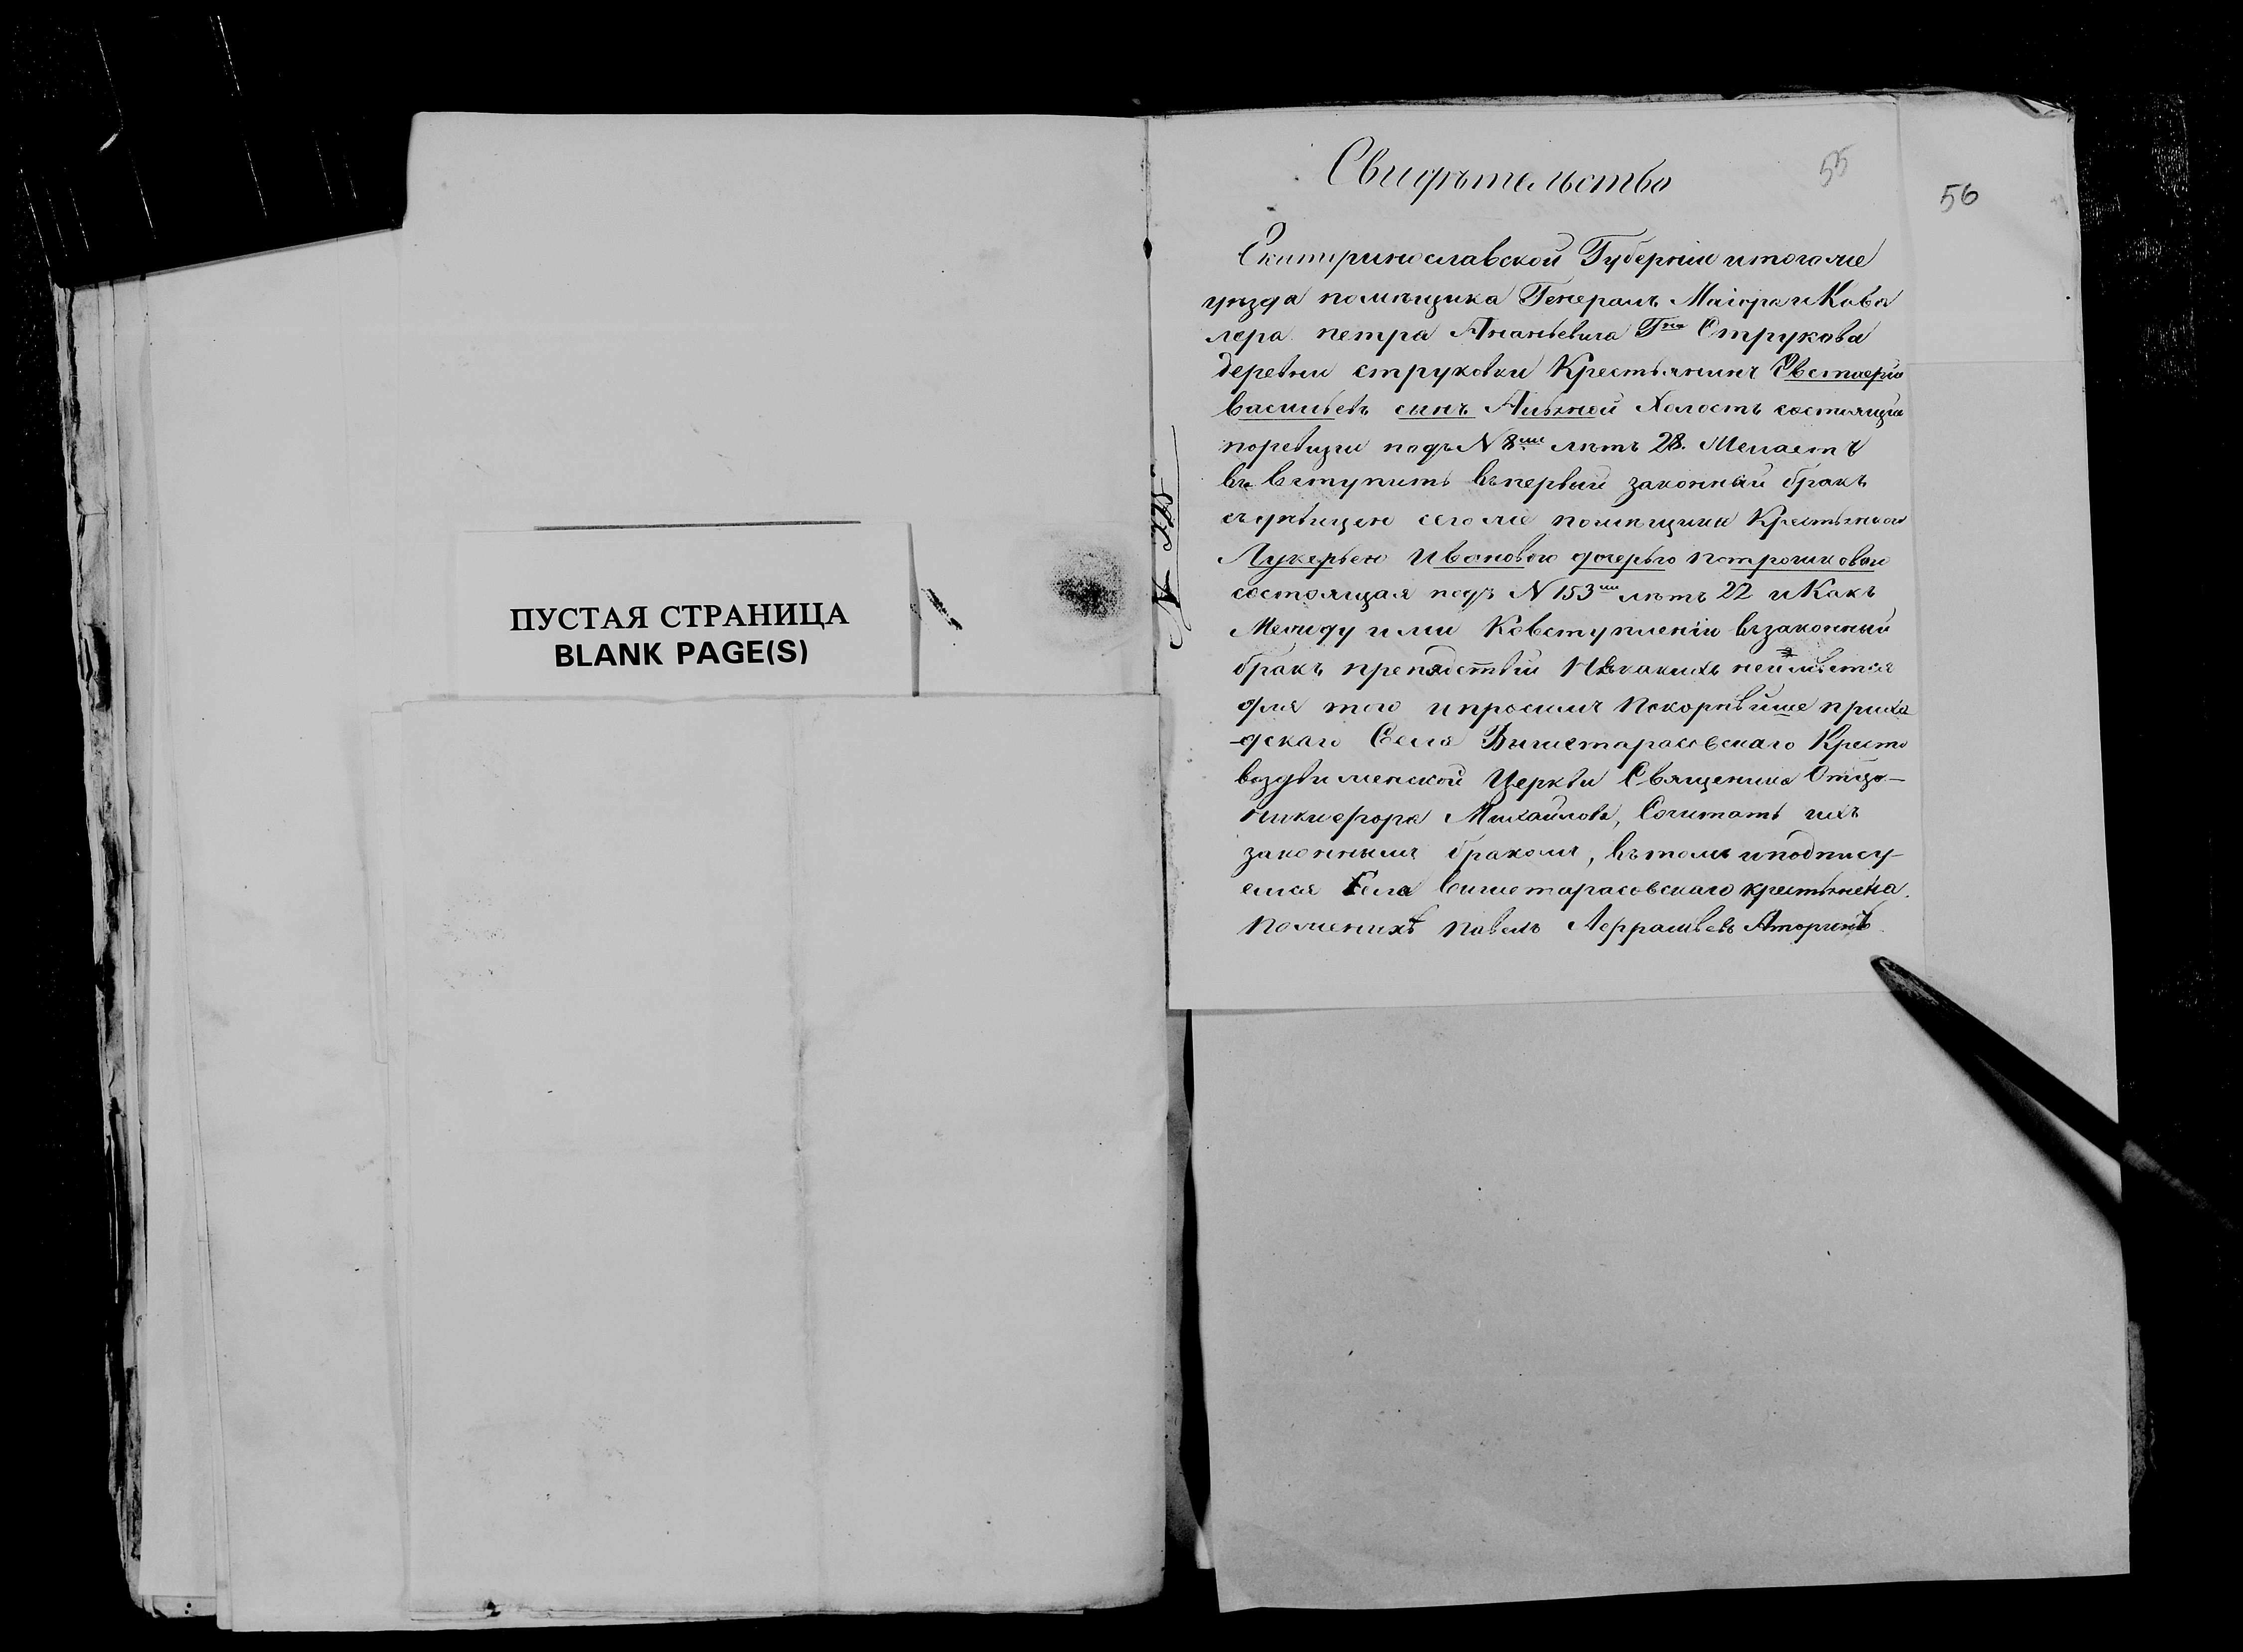 ПУСТАЯ СТРАНИЦА
BLANK PAGE(S)
55
56
Свидѣтельство
Екатиринославской Губерніи итогоже
уѣзда помѣщика Генералъ Маіора и Кова
лера петра Ананьевича Гна Струкова
деревни струковки Крестьянинъ Евстаѳiо
васильевъ сынъ Холостъ состоящiи
поревизги подъ N 8ме лѣтъ 28. Желаетъ
въ вступить въпервый законный бракъ
съ дѣвицею сегоже помѣщика Крестьянкои
Лукерьею Ивановою дочерью
состоящая подъ N 153ме лѣтъ 22 и Какъ
Между ими Ковступленію въ законный
бракъ препядствiи Нѣкакихъ неимѣется
для того и просимъ покорнѣише прихо
-дскаго Села Вышетарасовскаго Кресто
воздвиженской Церкви Священика Отца-
никифора Михайлова, Сочитать ихъ
законнымъ бракомъ, въ томъ иподпису-
емся Села вишетарасовскаго крестьнена.
поженихѣ павелъ